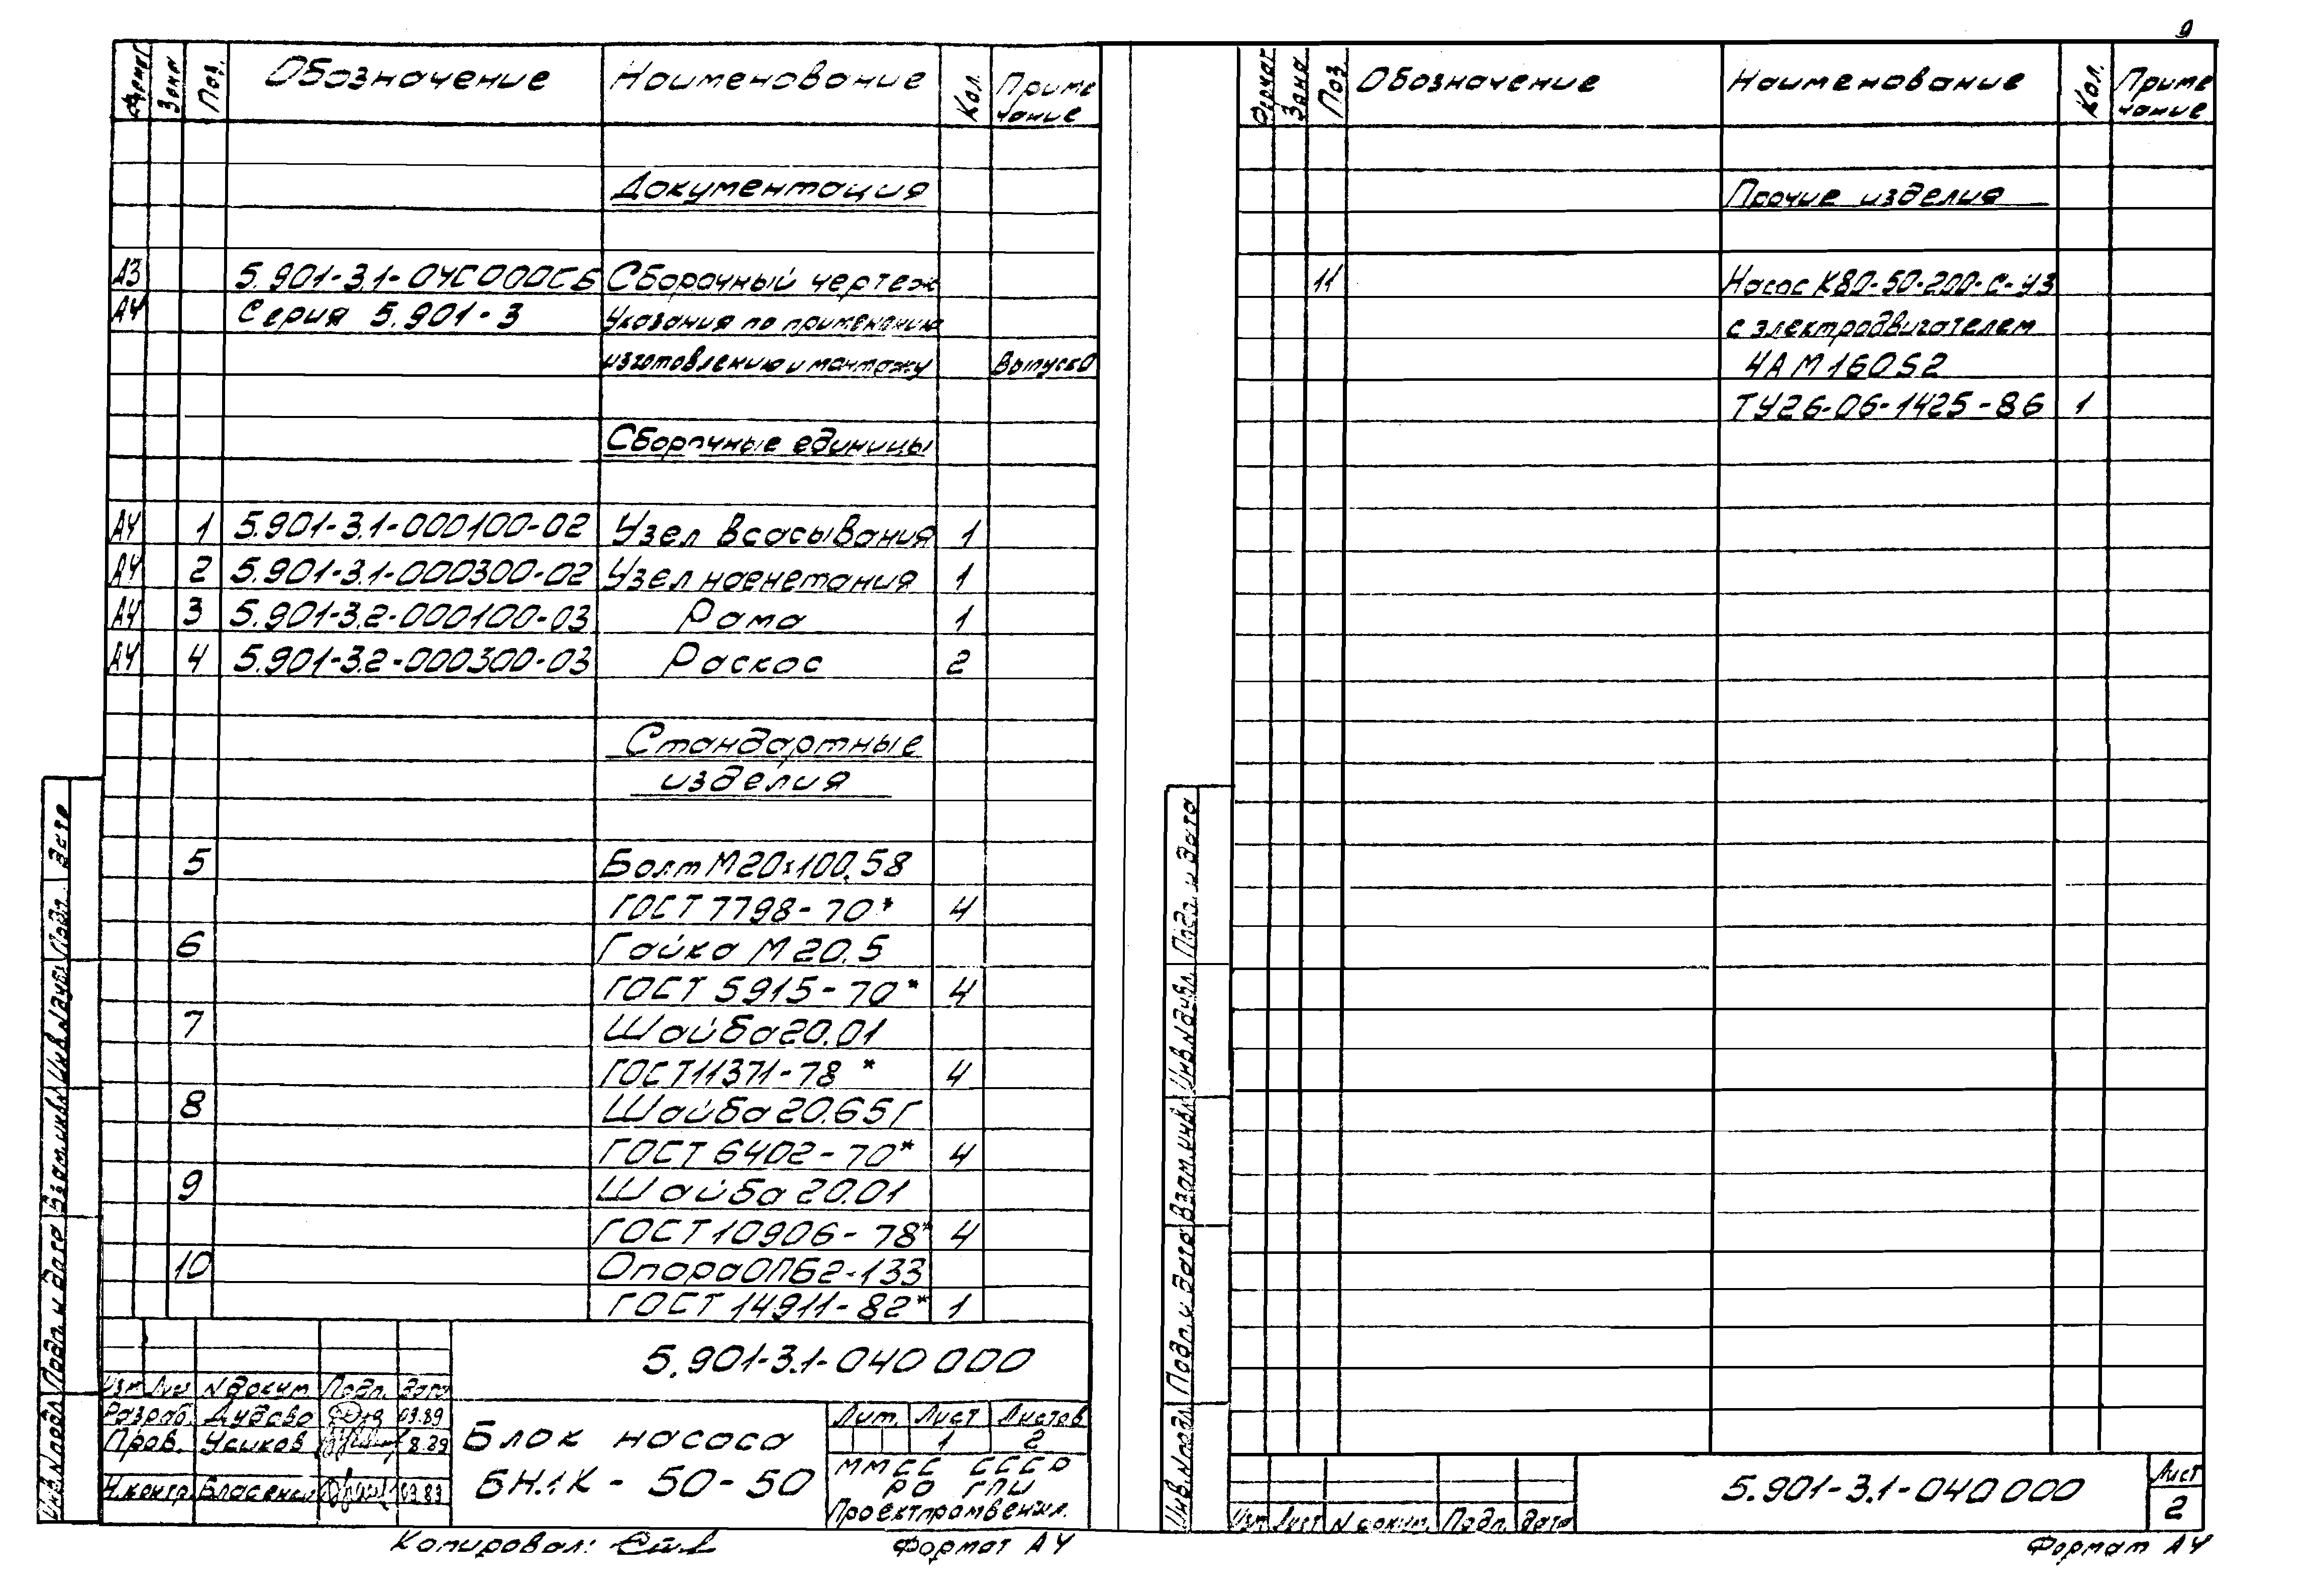 9
Формат Зона Поз. Обозначение Наименование Кол. Приме чание
Документация
А3 5.901-3.1-040000СБ Сборочный чертеж
А4 Серия 5.901-3 Указания по применению
изготовлению и монтажу Выпуск 0
Сборочные единицы
А4 1 5.901-3.1-000100-02 Узел всасывания 1
А4 2 5.901-3.1-000300-02 Узел нагнетания 1
А4 3 5.901-3.2-000100-03 Рама 1
А4 4 5.901-3.2-000300-03 Раскос 2
Стандартные
изделия
5 Болт М20х100.58
ГОСТ 7798-70* 4
6 Гайка М20.5
ГОСТ 5915-70* 4
7 Шайба 20.01
ГОСТ 11371-78* 4
8 Шайба 20.65Г
ГОСТ 6402-70* 4
9 Шайба 20.01
ГОСТ 10906-78* 4
10 Опора ОПБ2-133
ГОСТ 14911-82* 1
5.901-3.1-040000
Изм Лист N докум. Подп. Дата
Разраб. Дудова 09.89
Пров. Усиков 8.89
Н.контр.
09.89
Блок насоса
БН.1К-50-50
Лит. Лист Листов
1 2
ММСС СССР
РО ГПИ
Проектпромвентил.
Инв.N подл. Подп. и дата Взам.инв.N Инв.N дубл. Подп. и дата
Копировал:
Формат А4
Формат Зона Поз. Обозначение Наименование Кол. Приме чание
Прочие изделия
11 Насос К80-50-200-С-У3
с электродвигателем
4АМ160S2
ТУ26-06-1425-86 1
Инв.N подл. Подп. и дата Взам.инв.N Инв.N дубл. Подп. и дата
Изм Лист N докум. Подп. Дата
5.901-3.1-040000
Лист
2
Формат А4